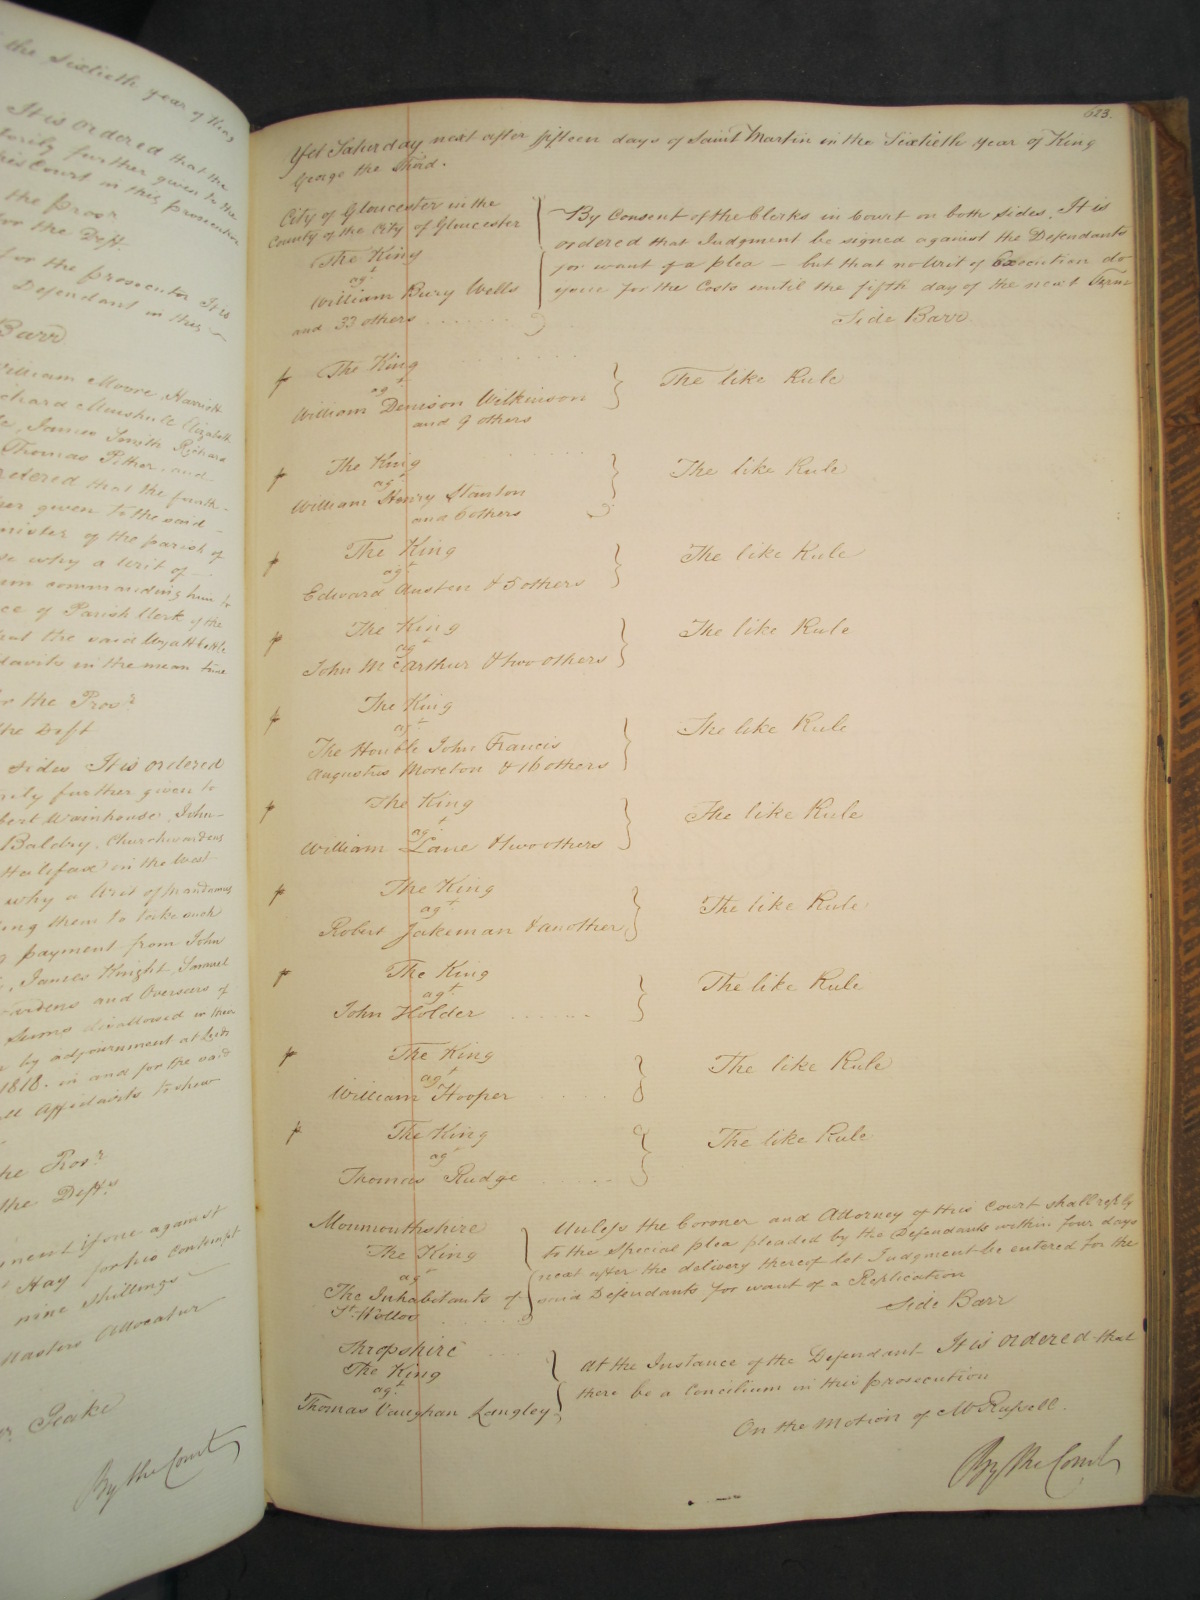 the Sixtieth year of King
It is ordered that the
further given to the
Court in this prosecution
the Prosr
for the Deft
for the prosecutor It is
Defendant in this
Barr
William Moore, Harriett
Richard Minshull Elizabeth
James Smith Richard
Thomas Pither, and
ordered that the
given to the said
minister of the parish of
why a Writ of
commanding him to
of Parish Clerk of the
that the said Wyatt
in the mean time
the Prosr
the Deft
sides It is ordered
further given to
Wainhouse, John
Baldry, Churchwardens
Halifax in the West
why a Writ of Mandamus
them to take such
payment from John
James Knight, Samuel
and Overseers of
Sums disallowed in their
by adjournment at Leeds
1818. in and for the said
Affidavits to shew
the Prosr
the Defts
issue against
Hay for his Contempt
nine shillings
Masters Allocatur
Peake
By the Court
613.
Yet Saturday next after fifteen days of Saint Martin in the Sixtieth year of King
George the Third.
City of Gloucester in the
County of the City of Gloucester
The King
agt
William Bury Wells
and 33 others
By Consent of the Clerks in Court on both sides, It is
ordered that Judgment be signed against the Defendants
for want of a plea - but that no Writ of Execution do
issue for the Costs until the fifth day of the next Term
Side Barr
p The King
agt
William Denison Wilkinson
and 9 others
The like Rule
p The King
agt
William Henry Stanton
and 6 others
The like Rule
p The King
agt
Edward Austen & 5 others
The like Rule
p The King
agt
John McArthur & two others
The like Rule
p The King
agt
The Honble John Francis
Augustus Moreton & 16 others
The like Rule
p The King
agt
William Lane & two others
The like Rule
p The King
agt
Robert Jakeman & another
The like Rule
p The King
agt
John Holder
The like Rule
p The King
agt
William Hooper
The like Rule
p The King
agt
Thomas Rudge
The like Rule
Monmouthshire
The King
agt
The Inhabitants of
St. Wollos
Unless the Coroner and Attorney of this Court shall reply
to the special plea pleaded by the Defendants within four days
next after the delivery thereof let Judgment be entered for the
said Defendants for want of a Replication
Side Barr
Shropshire
The King
agt
Thomas Vaughan Langley
At the Instance of the Defendant It is ordered that
there be a Concilium in this prosecution
On the Motion of Mr Russell.
By the Court